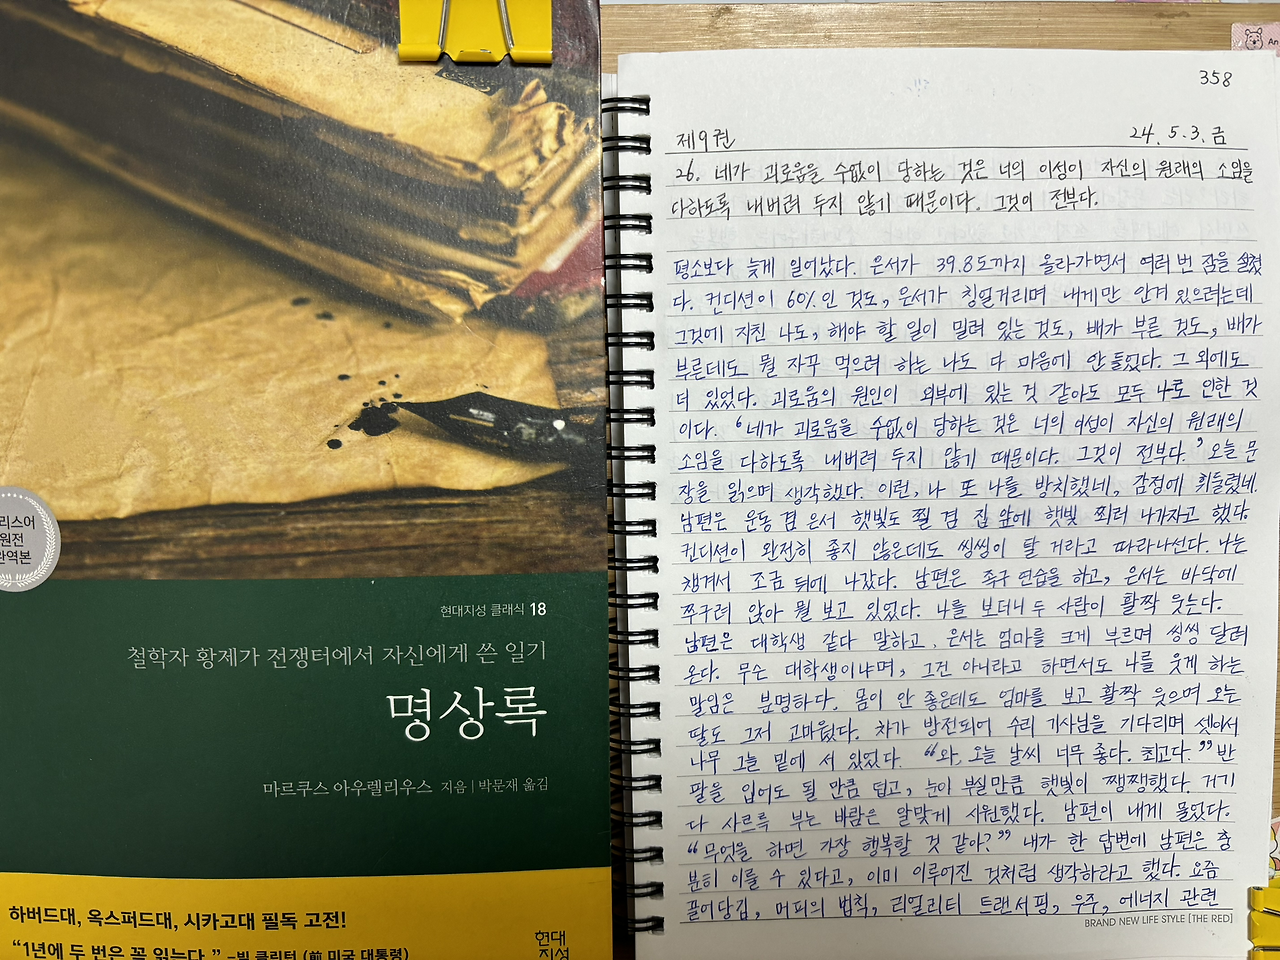 리스어
원전
완역본
현대지성 클래식 18
철학자 황제가 전쟁터에서 자신에게 쓴 일기
명상록
마르쿠스 아우렐리우스 지음 | 박문재 옮김
하버드대, 옥스퍼드대, 시카고대 필독 고전!
“1년에 두 번은 꼭 읽는다.” –빌 클린턴 (前 미국 대통령)
현대
지성
358
제9권 24. 5. 3. 금
26. 네가 괴로움을 수없이 당하는 것은 너의 이성이 자신의 원래의 소임을
다하도록 내버려 두지 않기 때문이다. 그것이 전부다.
평소보다 늦게 일어났다. 은서가 39.8도까지 올라가면서 여러 번 잠을 설쳤
다. 컨디션이 60%인 것도, 은서가 칭얼거리며 내게만 안겨 있으려는데
그것에 지친 나도, 해야 할 일이 밀려 있는 것도, 배가 부른 것도, 배가
부른데도 뭘 자꾸 먹으려 하는 나도 다 마음에 안 들었다. 그 외에도
더 있었다. 괴로움의 원인이 외부에 있는 것 같아도 모두 나로 인한 것
이다. ‘네가 괴로움을 수없이 당하는 것은 너의 이성이 자신의 원래의
소임을 다하도록 내버려 두지 않기 때문이다. 그것이 전부다.’ 오늘 문
장을 읽으며 생각했다. 이런, 나 또 나를 방치했네, 감정에 휘둘렸네.
남편은 운동 겸 은서 햇빛도 쬘 겸 집 앞에 햇빛 쬐러 나가자고 했다.
컨디션이 완전히 좋지 않은데도 씽씽이 탈 거라고 따라나선다. 나는
챙겨서 조금 뒤에 나갔다. 남편은 족구 연습을 하고, 은서는 바닥에
쭈구려 앉아 뭘 보고 있었다. 나를 보더니 두 사람이 활짝 웃는다.
남편은 대학생 같다 말하고, 은서는 엄마를 크게 부르며 씽씽 달려
온다. 무슨 대학생이냐며, 그건 아니라고 하면서도 나를 웃게 하는
말임은 분명하다. 몸이 안 좋은데도 엄마를 보고 활짝 웃으며 오는
딸도 그저 고마웠다. 차가 방전되어 수리 기사님을 기다리며 셋이서
나무 그늘 밑에 서 있었다. “와, 오늘 날씨 너무 좋다. 최고다.” 반
팔을 입어도 될 만큼 덥고, 눈이 부실만큼 햇빛이 쨍쨍했다. 거기
다 사르륵 부는 바람은 알맞게 시원했다. 남편이 내게 물었다.
“무엇을 하면 가장 행복할 것 같아?” 내가 한 답변에 남편은 충
분히 이룰 수 있다고, 이미 이루어진 것처럼 생각하라고 했다. 요즘
끌어당김, 머피의 법칙, 리얼리티 트랜서핑, 우주, 에너지 관련
BRAND NEW LIFE STYLE [THE RED]